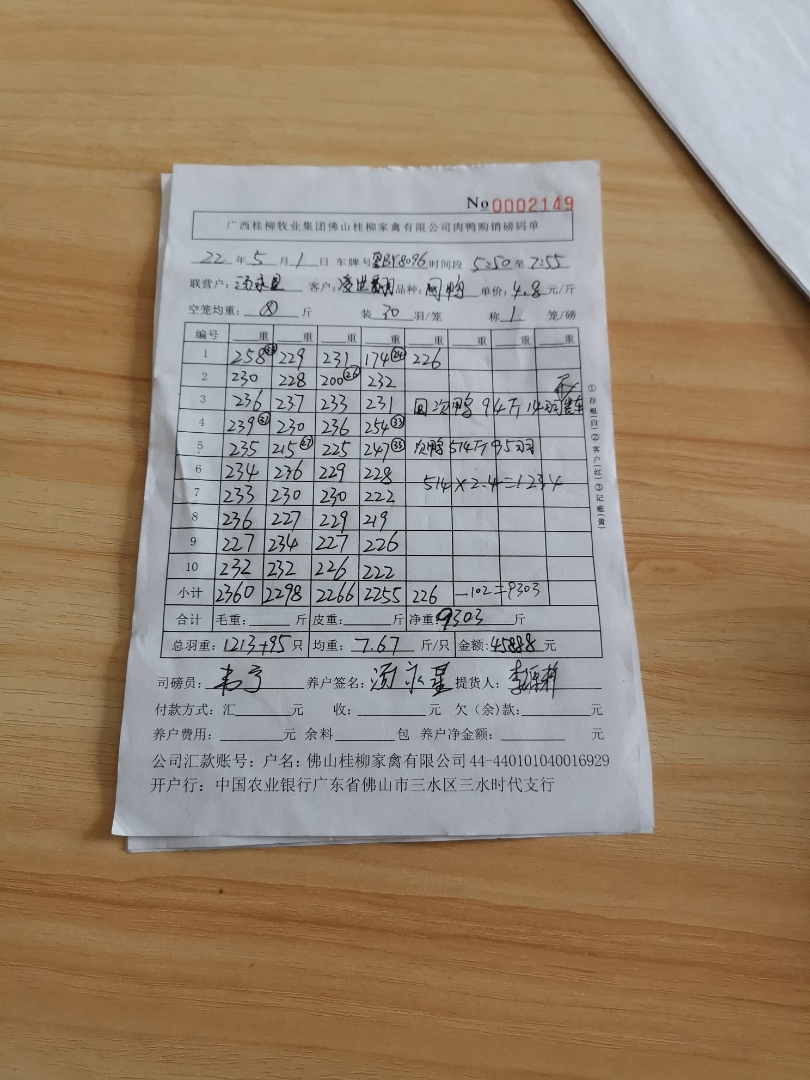 No 0002149
广西桂柳牧业集团佛山桂柳家禽有限公司肉鸭购销磅码单
22 年 5 月 1 日 车牌号 BY8096 时间段 5:50 至 7:55
联营户: 客户: 品种: 单价: 4.8 元/斤
空笼均重: ⑧ 斤 装 30 羽/笼 称 1 笼/磅
编号 重 重 重 重 重 重 重 重
1 258 229 231 174(24) 226
2 230 228 200(26) 232
3 236 237 233 231 回次鸭 94斤 14羽
4 239(31) 230 236 254(33)
5 235 215(27) 225 247(33) 次鸭 514斤 95羽
6 234 236 229 228
7 233 230 230 222 514×2.4=1234
8 236 227 229 219
9 227 234 227 226
10 232 232 226 222
小计 2360 2298 2266 2255 226 -102=9303
合计 毛重: 斤 皮重: 斤 净重: 9303 斤
总羽重: 1213+95 只 均重: 7.67 斤/只 金额: 45888 元
司磅员: 养户签名: 提货人:
付款方式: 汇 元 收: 元 欠(余)款: 元
养户费用: 元 余料 包 养户净金额: 元
公司汇款账号: 户名: 佛山桂柳家禽有限公司 44-440101040016929
开户行: 中国农业银行广东省佛山市三水区三水时代支行
①存根(白)②客户(红)③记账(黄)